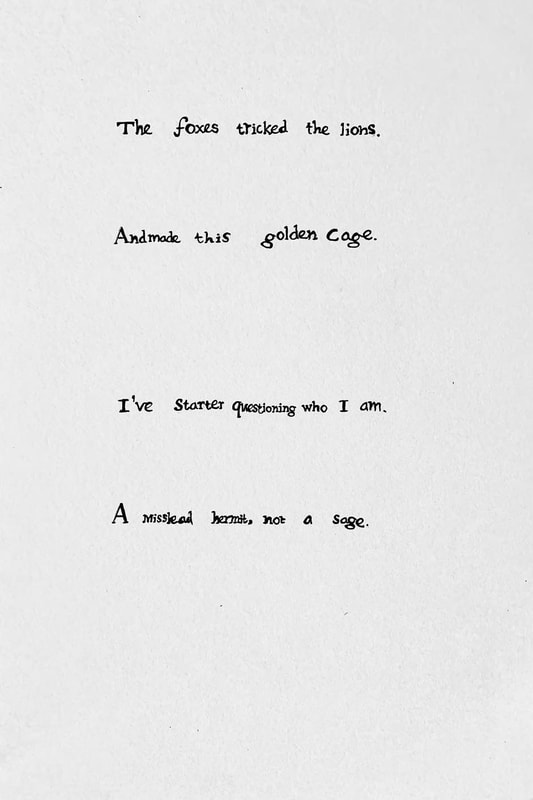 The foxes tricked the lions.
Andmade this golden Cage.
I've Starter questioning who I am.
A Misslead hermit, not a sage.